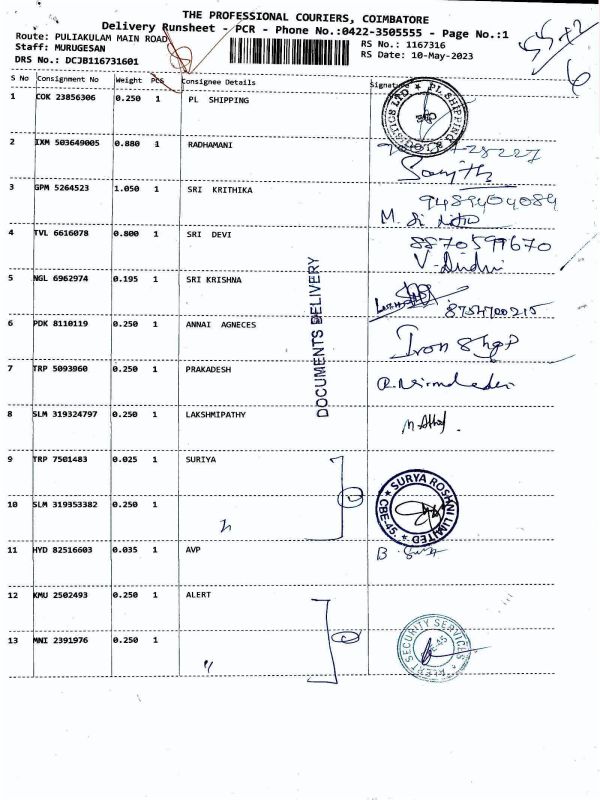 THE PROFESSIONAL COURIERS, COIMBATORE
Delivery Runsheet - PCR - Phone No.:0422-3505555 - Page No.:1
Route: PULIAKULAM MAIN ROAD
RS No.: 1167316
Staff: MURUGESAN
RS Date: 10-May-2023
DRS No.: DCJB116731601
S No Consignment No Weight PCS Consignee Details Signature
1 COK 23856306 0.250 1 PL SHIPPING
PL SHIPPING
2 IXM 503649005 0.880 1 RADHAMANI
3 GPM 5264523 1.050 1 SRI KRITHIKA
9489404089
4 TVL 6616078 0.800 1 SRI DEVI
8870599670
5 NGL 6962974 0.195 1 SRI KRISHNA
8754700215
6 PDK 8110119 0.250 1 ANNAI AGNECES
Iron Shop
7 TRP 5093960 0.250 1 PRAKADESH
8 SLM 319324797 0.250 1 LAKSHMIPATHY
DOCUMENTS DELIVERY
9 TRP 7501483 0.025 1 SURIYA
10 SLM 319353382 0.250 1
SURYA ROSHNI LIMITED
CBE-45.
11 HYD 82516603 0.035 1 AVP
12 KMU 2502493 0.250 1 ALERT
13 MNI 2391976 0.250 1
ALERT SECURITY SERVICES